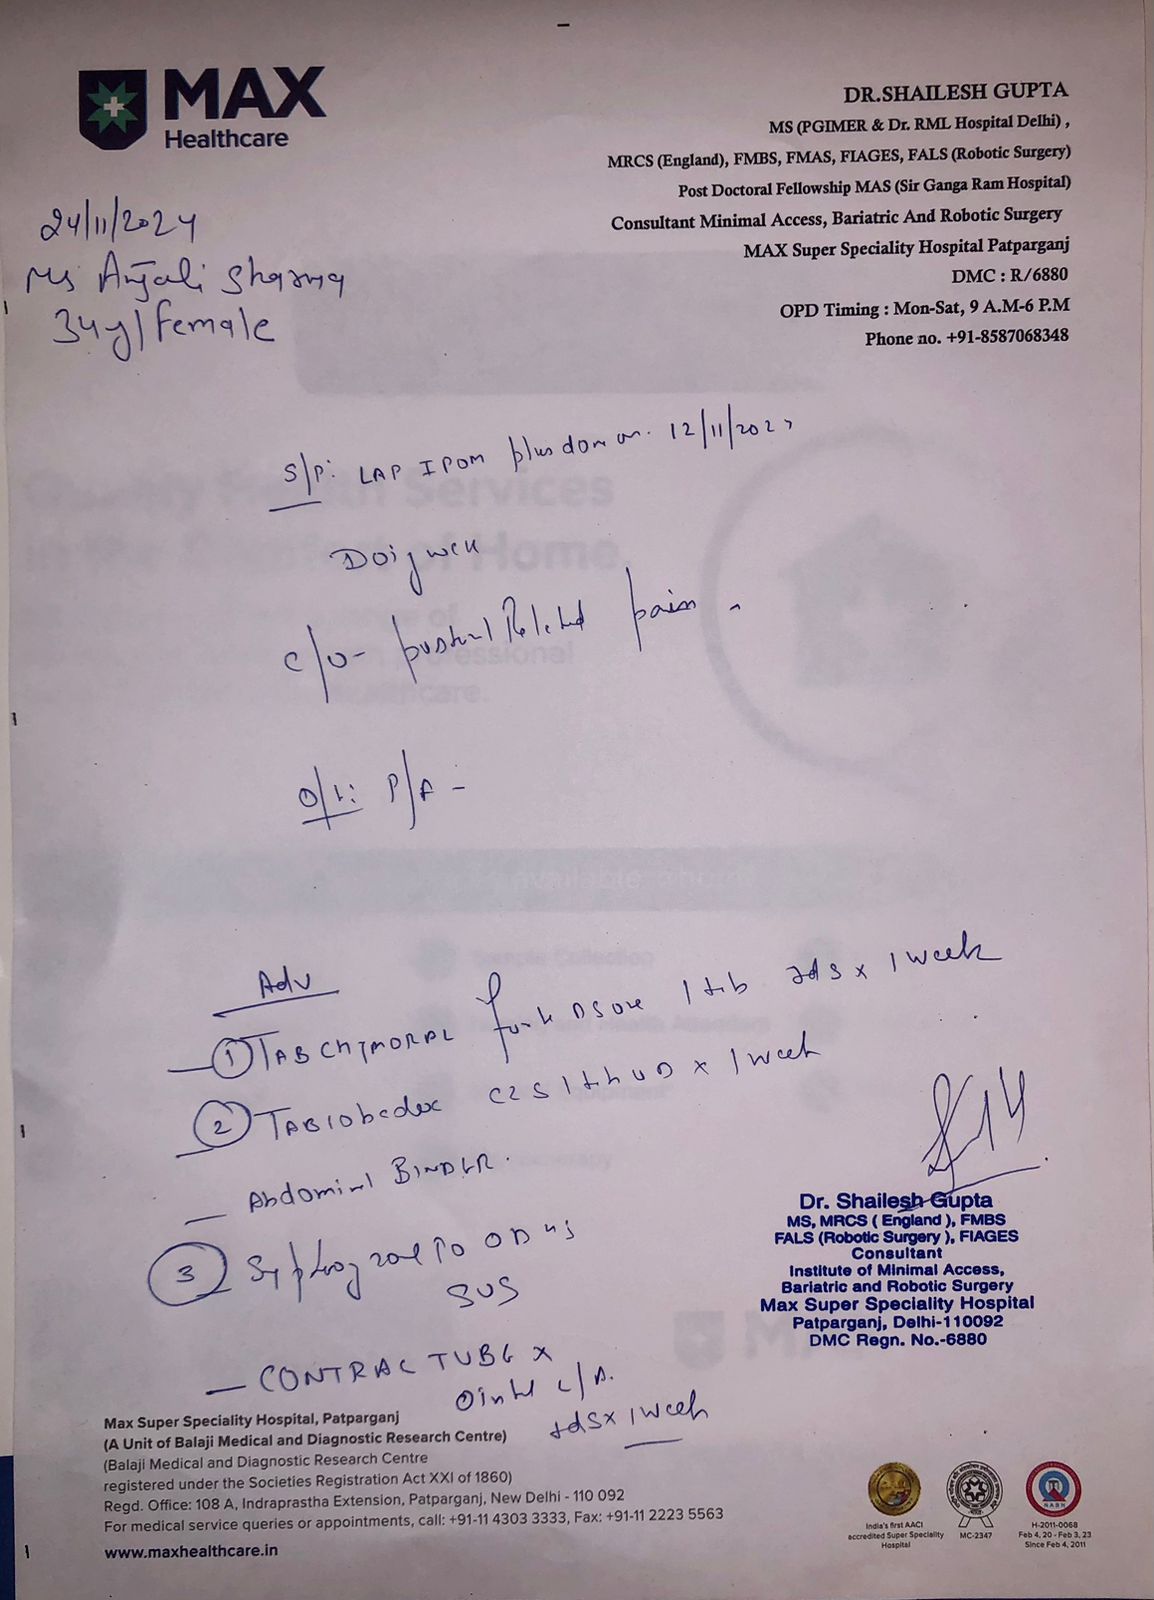 MAX
Healthcare
DR.SHAILESH GUPTA
MS (PGIMER & Dr. RML Hospital Delhi) ,
MRCS (England), FMBS, FMAS, FIAGES, FALS (Robotic Surgery)
Post Doctoral Fellowship MAS (Sir Ganga Ram Hospital)
Consultant Minimal Access, Bariatric And Robotic Surgery
MAX Super Speciality Hospital Patparganj
DMC : R/6880
OPD Timing : Mon-Sat, 9 A.M-6 P.M
Phone no. +91-8587068348
24/11/2024
Ms Anjali Sharma
34y/Female
S/P: LAP IPOM plus done on 12/11/202
Doing well
c/o- postural Related pain
O/E: P/A -
Adv
① TAB CHYMORAL forte 1 tab tds x 1 week
② TAB 1 tab x 1 week
Abdominal BINDER.
③ OD HS
SOS
CONTRAC TUBE x
Ointment L/A.
tds x 1 week
Dr. Shailesh Gupta
MS, MRCS ( England ), FMBS
FALS (Robotic Surgery ), FIAGES
Consultant
Institute of Minimal Access,
Bariatric and Robotic Surgery
Max Super Speciality Hospital
Patparganj, Delhi-110092
DMC Regn. No.-6880
Max Super Speciality Hospital, Patparganj
(A Unit of Balaji Medical and Diagnostic Research Centre)
(Balaji Medical and Diagnostic Research Centre
registered under the Societies Registration Act XXI of 1860)
Regd. Office: 108 A, Indraprastha Extension, Patparganj, New Delhi - 110 092
For medical service queries or appointments, call: +91-11 4303 3333, Fax: +91-11 2223 5563
www.maxhealthcare.in
India's first AACI
accredited Super Speciality
Hospital
MC-2347
NABH
H-2011-0068
Feb 4, 20 - Feb 3, 23
Since Feb 4, 2011